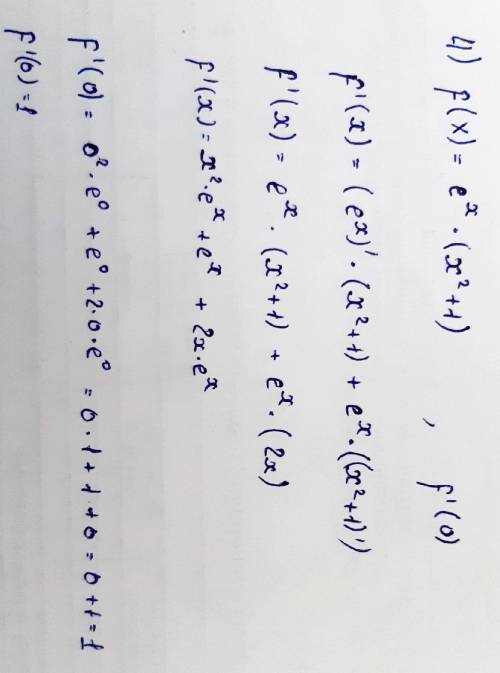 4) f(x) = e^x · (x²+1) , f'(0)
f'(x) = (e^x)' · (x²+1) + e^x · ((x²+1)')
f'(x) = e^x · (x²+1) + e^x · (2x)
f'(x) = x² · e^x + e^x + 2x · e^x
f'(0) = 0² · e⁰ + e⁰ + 2 · 0 · e⁰ = 0 · 1 + 1 + 0 = 0 + 1 = 1
f'(0) = 1